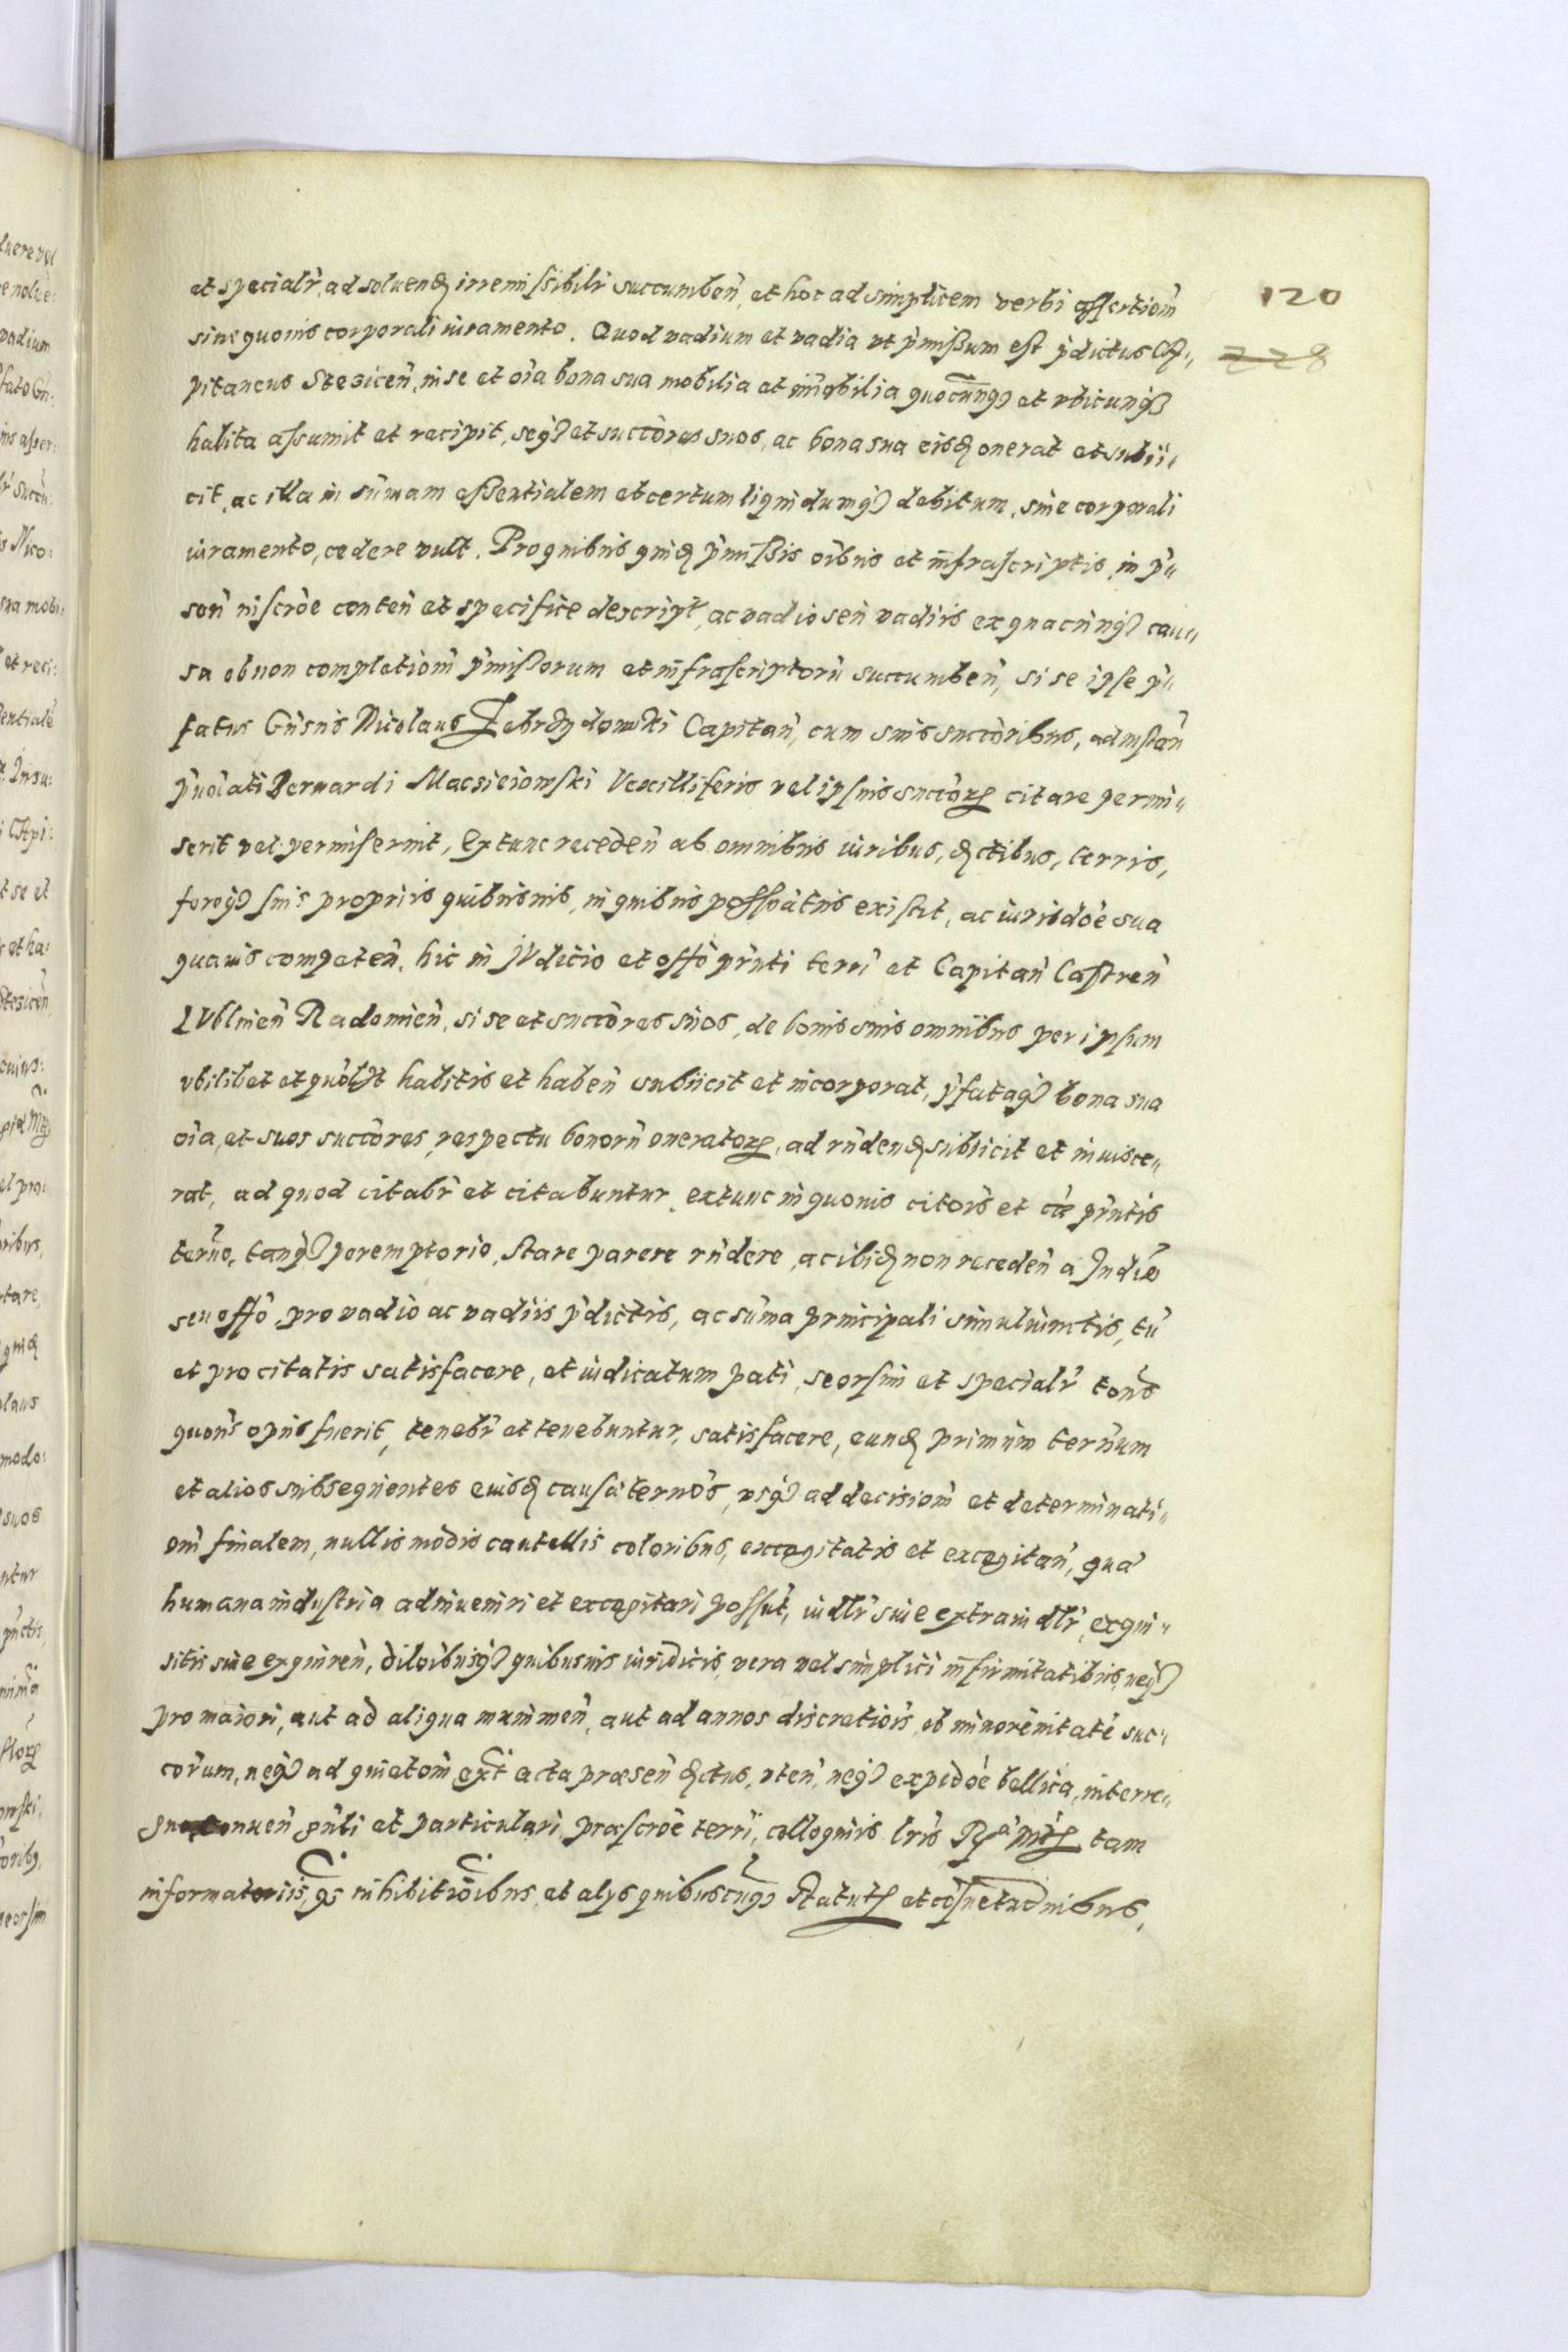 120
228
et specialr̃, ad soluenđ irremissibilr̃ succumben̄, et hoc ad simplicem verbi assertiom̃
sine quouis corporali iuramento. Quod vadium et vadia vt p̃missum est p̃dictus Ca„
pitaneus Stezicen̄, in se et oĩa bona sua mobilia et im̃obilia quocunq₃ et vbicunq₃
habita assumit et recipit, seq₃ et succõres suos, ac bona sua eisđ onerat et subii„
cit, ac illa in sum̃am essentialem et certum liquidumq₃ debitum, sine corporali
iuramento, cedere vult. Pro quibus quiđ p̃missis oĩbus et infrascriptis, in p̃„
sen̄ inscrõe conten̄ et specifice descript, ac vadio seu vadiis ex quacunq₃ cau„
sa ob non completiom̃ p̃missorum et infrascriptorũ succumben̄, si se ipse p̃„
fatus Gn̄sus Nicolaus Zebrzydowski Capitan̄, cum suis succõribus, ad instan̄
p̃nõiati Bernardi Macieiowski Vexilliferis vel ipsius succõrꝝ citare permi„
serit vel permiserint, Ex tunc receden̄ ab omnibus iuribus, đctibus, terris,
foroq₃ suis propriis quibusuis, in quibus possõatus existit, ac iurisdõe sua
quauis competen̄, hic in Judicio et offõ p̃nti terrĩ et Capitan̄ Castren̄
Lublinen̄ Radomien̄, si se et succõres suos, de bonis suis omnibus per ipsum
vbilibet et quõlt habitis et haben̄ subiicit et incorporat, p̃fataq₃ bona sua
oĩa, et suos succõres, respectu bonorũ oneratorꝝ, ad rñdenđ subiicit et inuisce„
rat, ad quod citabr̃ et citabuntur, extunc in quouis citoĩs et cã p̃ntis
terno, tanq₃ peremptorio, stare parere rñdere, ac ibiđ non receden̄ a Judiõ
seu offõ, pro vadio ac vadiis p̃dictis, ac sum̃a principali simul iunctis, tũ
et pro citatis satisfacere, et iudicatum pati, seorsim et specialr̃ toñs
quoñs opus fuerit, tenebr̃ et tenebuntur, satisfacere, eunđ primum terñum
et alios subsequentes eiusđ causã terños, vsq₃ ad decisiom̃ et determinati„
om̃ finalem, nullis modis cautellis coloribus, excogitatis et excogitan̄, quã
humana industria adinueniri et excogitari possũt, iudlr̃ siue extraiudlr̃, exqui„
sitis siue exquiren̄, diloĩbusq₃ quibusuis iuridicis, vera vel simplici infirmitatibus, neq₃
pro maiori, aut ad aliqua munimen̄, aut ad annos discretioĩs, ob minorẽnitatẽ suc„
corum, neq₃ ad quietom̃ ext acta præsen̄ đctus, vten̄, neq₃ expidõe bellica, interre„
gno, conuen̄ gñli et particulari, præscrõe terrĩ, colloquiis lris Rꝭ Mtꝭ tam
informatoriis, qꝫ inhibitioĩbus, et alys quibuscũq₃ Statutꝭ et cõsuetudinibus,